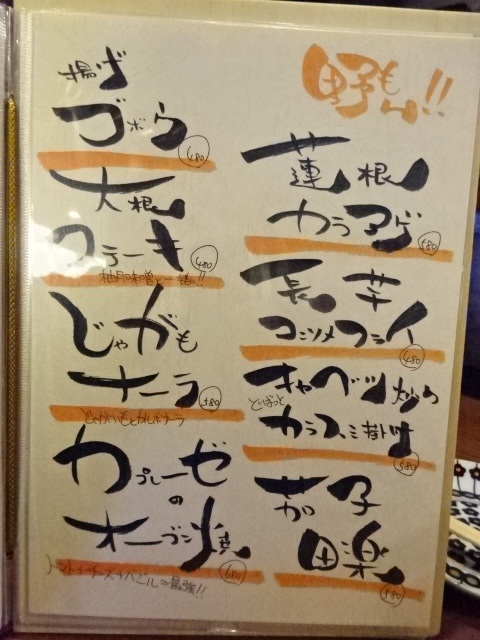 野もん!!
蓮根
カラアゲ
580
長芋
コンソメフライ
480
キャベツ炒め
どばっと
カラスミ掛け
580
茄子
田楽
580
揚げ
ゴボウ
480
大根
ステーキ
480
柚の味噌と一緒!!
じゃがも
ナーラ
580
じゃがいもとカルボナーラ
カプレーゼ
の
オーブン焼
680
トマト+チーズ+バジル=最強!!